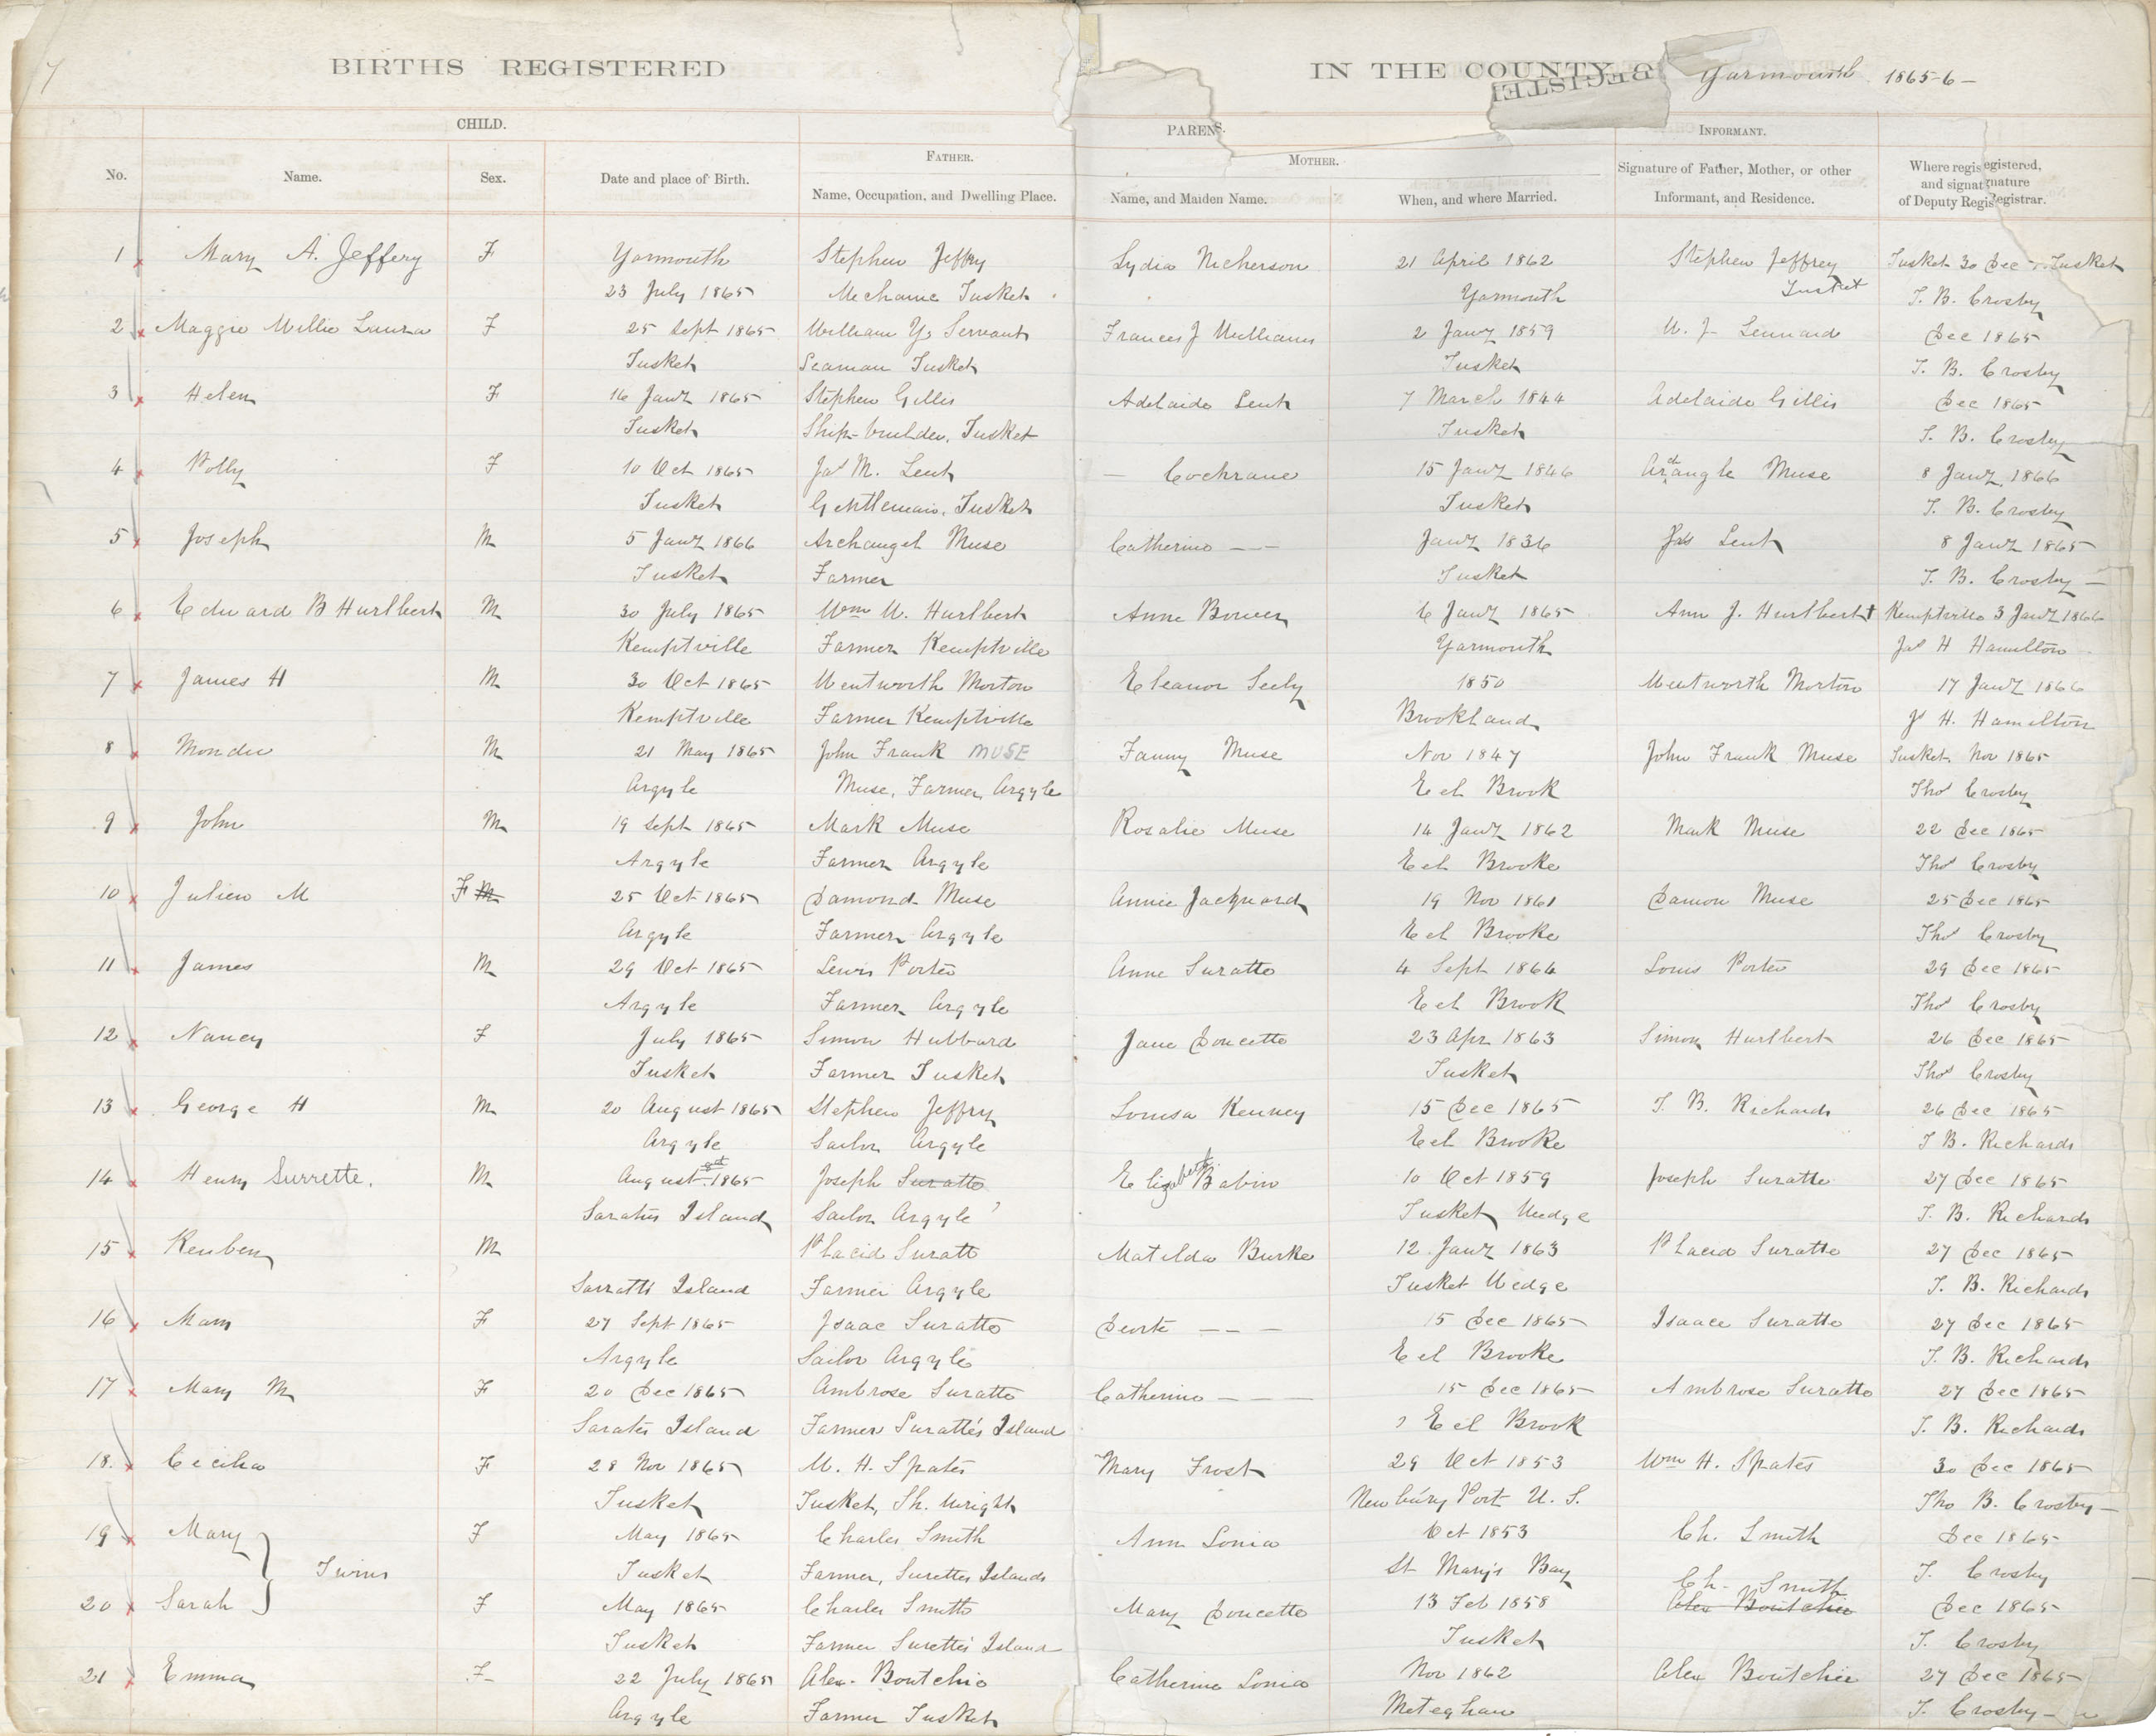 7
BIRTHS REGISTERED IN THE COUNTY Yarmouth 1865-6-
REGISTE
CHILD. PAREN S. INFORMANT.
FATHER. MOTHER.
No. Name. Sex. Date and place of Birth. Name, Occupation, and Dwelling Place. Name, and Maiden Name. When, and where Married. Signature of Father, Mother, or other Informant, and Residence. Where regis egistered, and signat nature of Deputy Regis Registrar.
1 Mary A. Jeffery F Yarmouth Stephen Jeffry Lydia Nickerson 21 April 1862 Stephen Jeffrey Tusket 30 Dec Tusket
23 July 1865 Mechanic Tusket Yarmouth Tusket T. B. Crosby
2 Maggie Millie Laura F 25 Sept 1865 William Y. Servant Frances J Williams 2 Jany 1859 W. J. Lennard Dec 1865
Tusket Seaman Tusket Tusket T. B. Crosby
3 Helen F 16 Jany 1865 Stephen Gillis Adelaide Lent 7 March 1844 Adelaide Gillis Dec 1865
Tusket Ship-builder, Tusket Tusket T. B. Crosby
4 Polly F 10 Oct 1865 Jas M. Lent — Cochrane 15 Jany 1846 Muse 8 Jany 1866
Tusket Gentleman, Tusket Tusket T. B. Crosby
5 Joseph M 5 Jany 1866 Archangel Muse Catherine — — Jany 1836 Jas Lent 8 Jany 1865
Tusket Farmer Tusket T. B. Crosby —
6 Edward B Hurlbert M 30 July 1865 Wm W. Hurlbert Anne Bower 6 Jany 1865 Ann J. Hurlbert Kemptville 3 Jany 1866
Kemptville Farmer Kemptville Yarmouth Jas H Hamilton
7 James H M 30 Oct 1865 Wentworth Morton Eleanor Seely 1850 Wentworth Morton 17 Jany 1866
Kemptville Farmer Kemptville Brookland Js H. Hamilton
8 Mondie M 21 May 1865 John Frank MUSE Fanny Muse Nov 1847 John Frank Muse Tusket Nov 1865
Argyle Muse, Farmer, Argyle Eel Brook Thos Crosby
9 John M 19 Sept 1865 Mark Muse Rosalie Muse 14 Jany 1862 Mark Muse 22 Dec 1865
Argyle Farmer Argyle Eel Brooke Thos Crosby
10 Julien M F M 25 Oct 1865 Damond Muse Annie Jacquard 19 Nov 1861 Damon Muse 25 Dec 1865
Argyle Farmer Argyle Eel Brooke Thos Crosby
11 James M 29 Oct 1865 Lewis Porter Anne Suratte 4 Sept 1864 Louis Porter 29 Dec 1865
Argyle Farmer Argyle Eel Brook Thos Crosby
12 Nancy F July 1865 Simon Hubbard Jane Doucette 23 Apr 1863 Simon Hurlbert 26 Dec 1865
Tusket Farmer Tusket Tusket Thos Crosby
13 George H M 20 August 1865 Stephen Jeffry Louisa Kenney 15 Dec 1865 T. B. Richards 26 Dec 1865
Argyle Sailor Argyle Eel Brooke T B. Richards
14 Henry Surrette. M August 1865 Joseph Suratte Elizabeth Babin 10 Oct 1859 Joseph Suratte 27 Dec 1865
Saratus Island Sailor Argyle Tusket Wedge T. B. Richards
15 Reuben M Placid Suratt Matilda Burke 12 Jany 1863 Placid Suratte 27 Dec 1865
Sarratts Island Farmer Argyle Tusket Wedge T. B. Richards
16 Mary F 27 Sept 1865 Isaac Suratte — — — 15 Dec 1865 Isaace Suratte 27 Dec 1865
Argyle Sailor Argyle Eel Brooke T. B. Richards
17 Mary M F 20 Dec 1865 Ambrose Suratte Catherine — — — 15 Dec 1865 Ambrose Suratte 27 Dec 1865
Sarates Island Farmer Suratte's Island Eel Brook T. B. Richards
18. Cecilia F 28 Nov 1865 W. H. Spates Mary Frost 29 Oct 1853 Wm H. Spates 30 Dec 1865
Tusket Tusket, Sh. Wright Newbury Port U. S. Tho B. Crosby —
19 Mary F May 1865 Charles Smith Ann Sonia Oct 1853 Ch. Smith Dec 1865
Twins Tusket Farmer, Surettes Islands St Mary's Bay T. Crosby
Ch. Smith
20 Sarah F May 1865 Charles Smith Mary Doucette 13 Feb 1858 Alex Boutchie Dec 1865
Tusket Farmer Surette's Island Tusket T. Crosby
21 Emma F 22 July 1865 Alex. Boutchie Catherine Sonia Nov 1862 Alex Boutchie 27 Dec 1865
Argyle Farmer Tusket Meteghan T. Crosby —